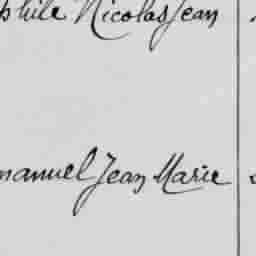 phile Nicolas Jean
manuel Jean Marie